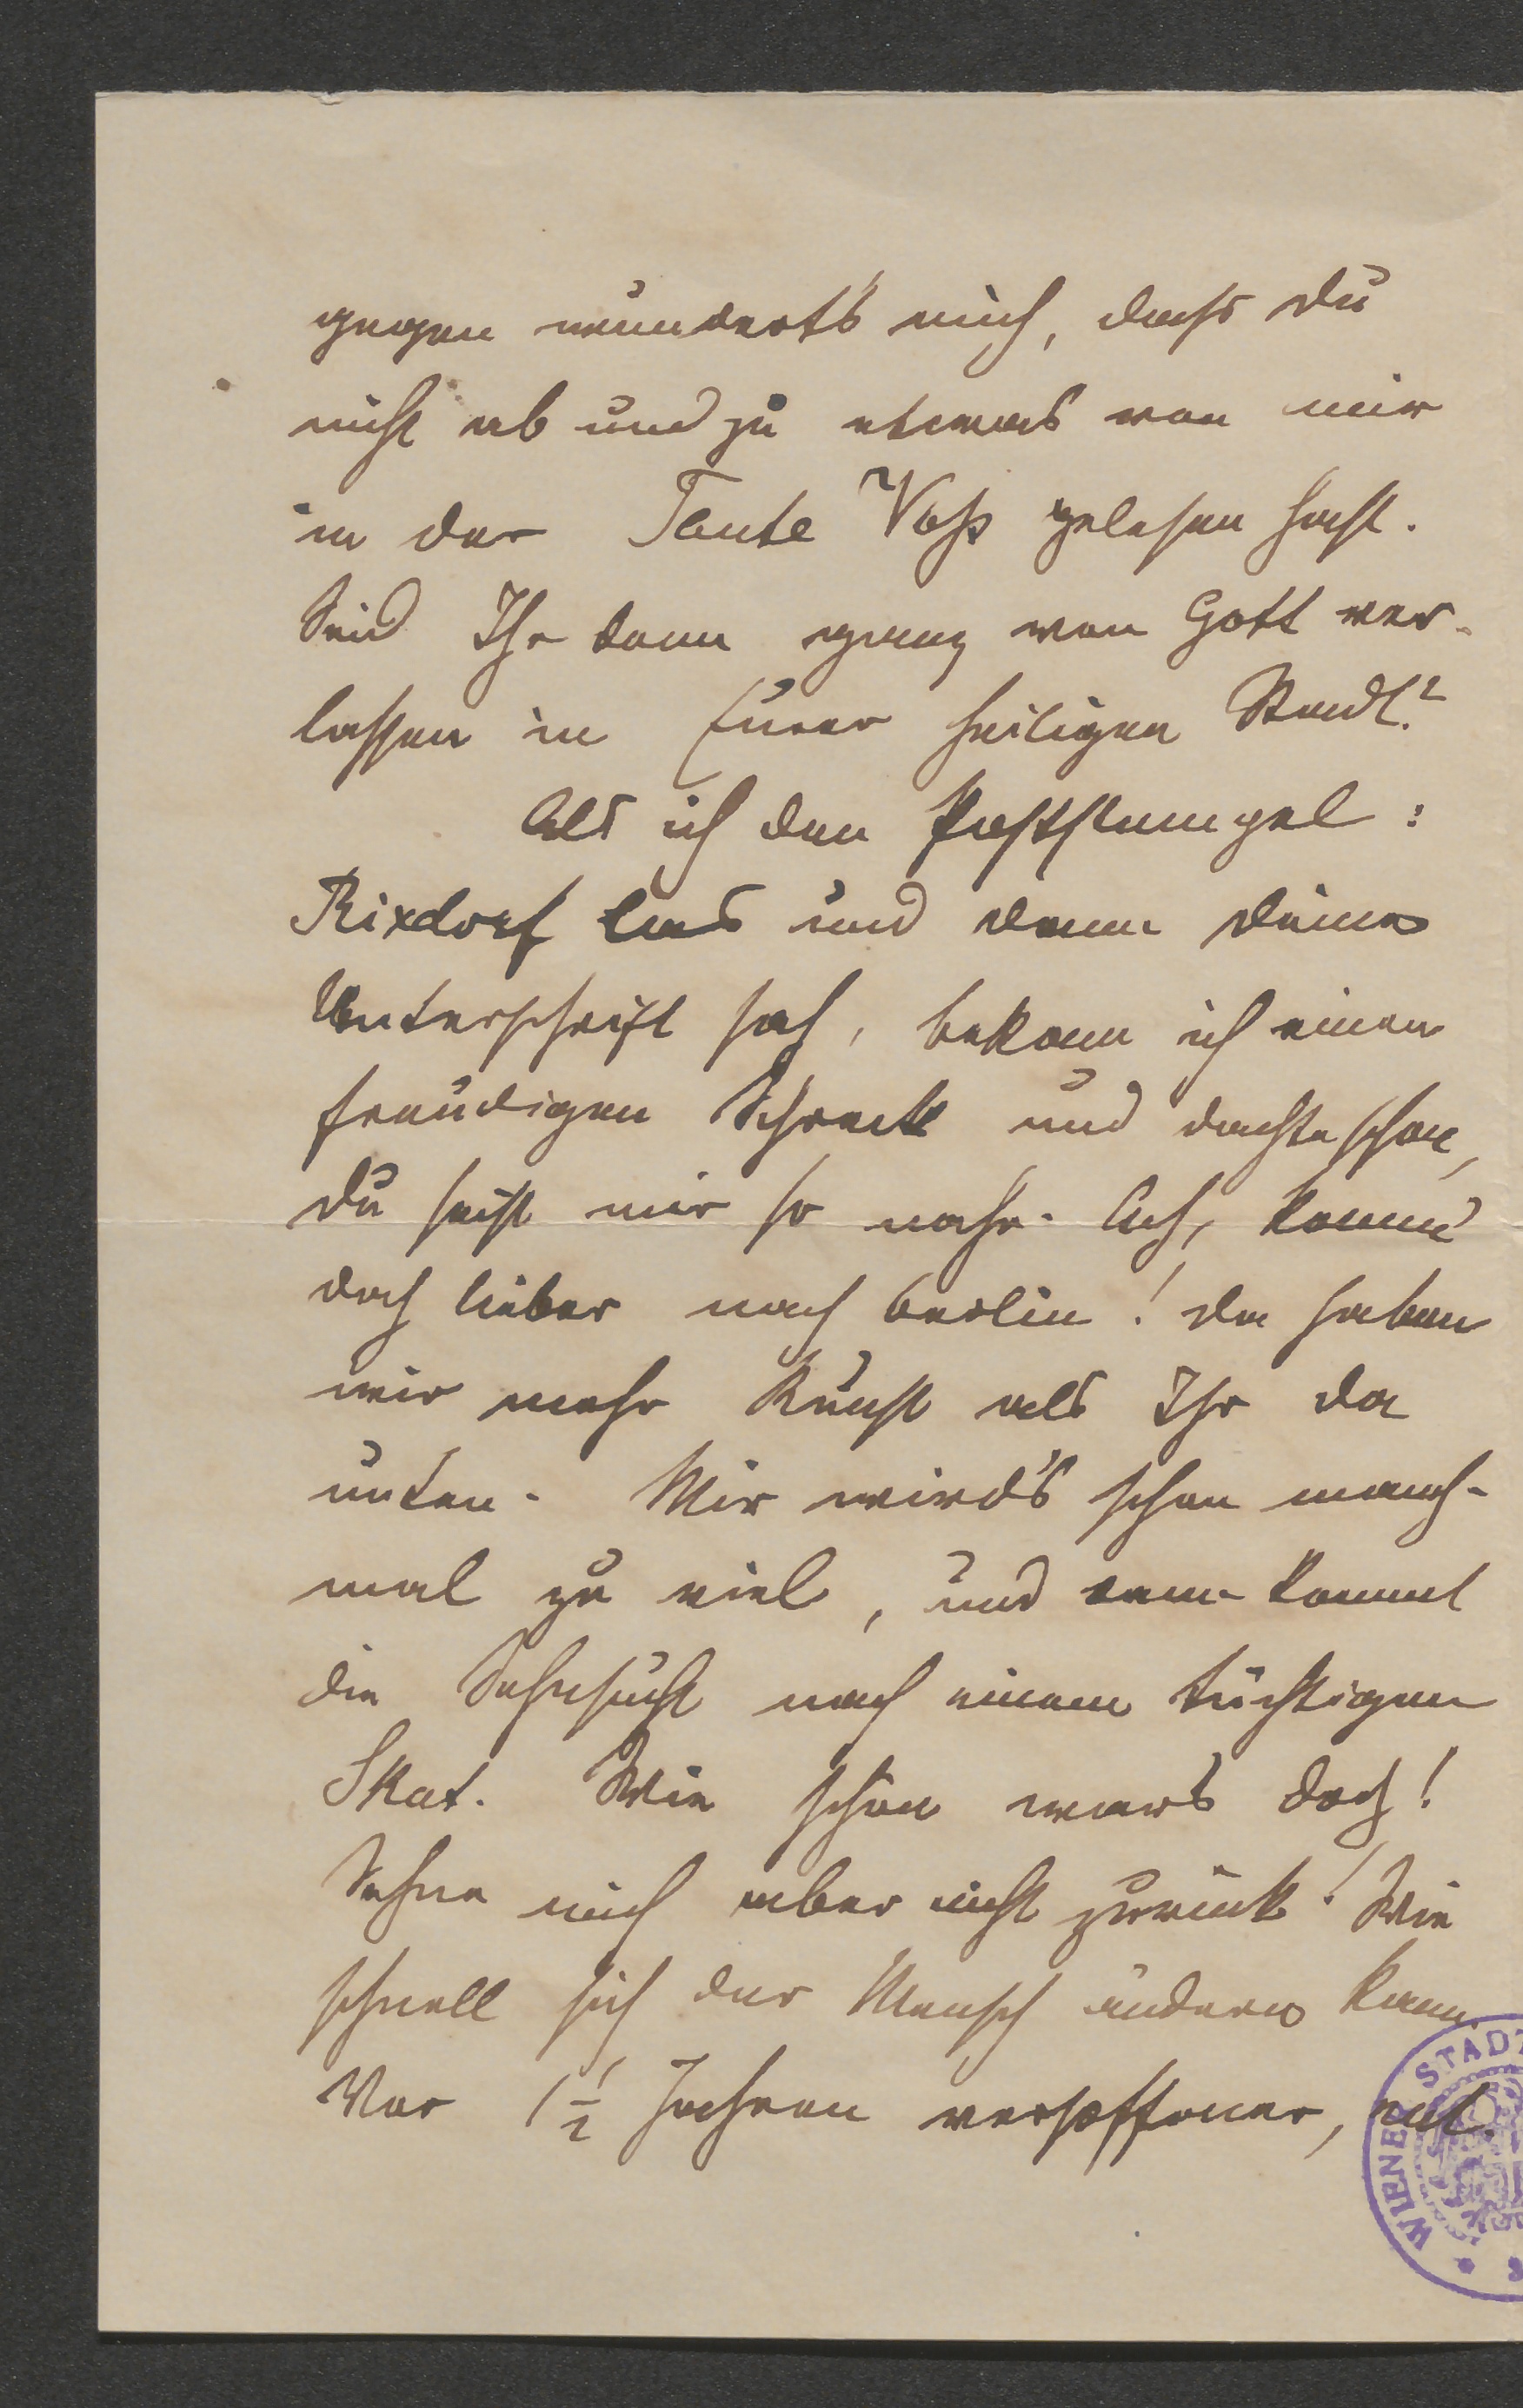 gegen wundert's mich, dass Du
nicht ab und zu etwas von mir
in der Tante Voß gelesen hast.
Seid Ihr denn ganz von Gott ver-
lassen in Eurer heiligen Stadt?
Als ich den Poststempel:
Rixdorf las und dann Deine
Unterschrift sah, bekam ich einen
freudigen Schreck und dachte schon,
Du seist mir so nahe. Ach, komm'
doch lieber nach Berlin! Da haben
wir mehr Kunst als Ihr da
unten. Mir wird's schon manch-
mal zu viel, und dann kommt
die Sehnsucht nach einem tüchtigen
Skat. Wie schön war's doch!
Sehne mich aber nicht zurück! Wie
schnell sich der Mensch ändern kann.
Vor 1½ Jahren versoffener,
WIENER STADT